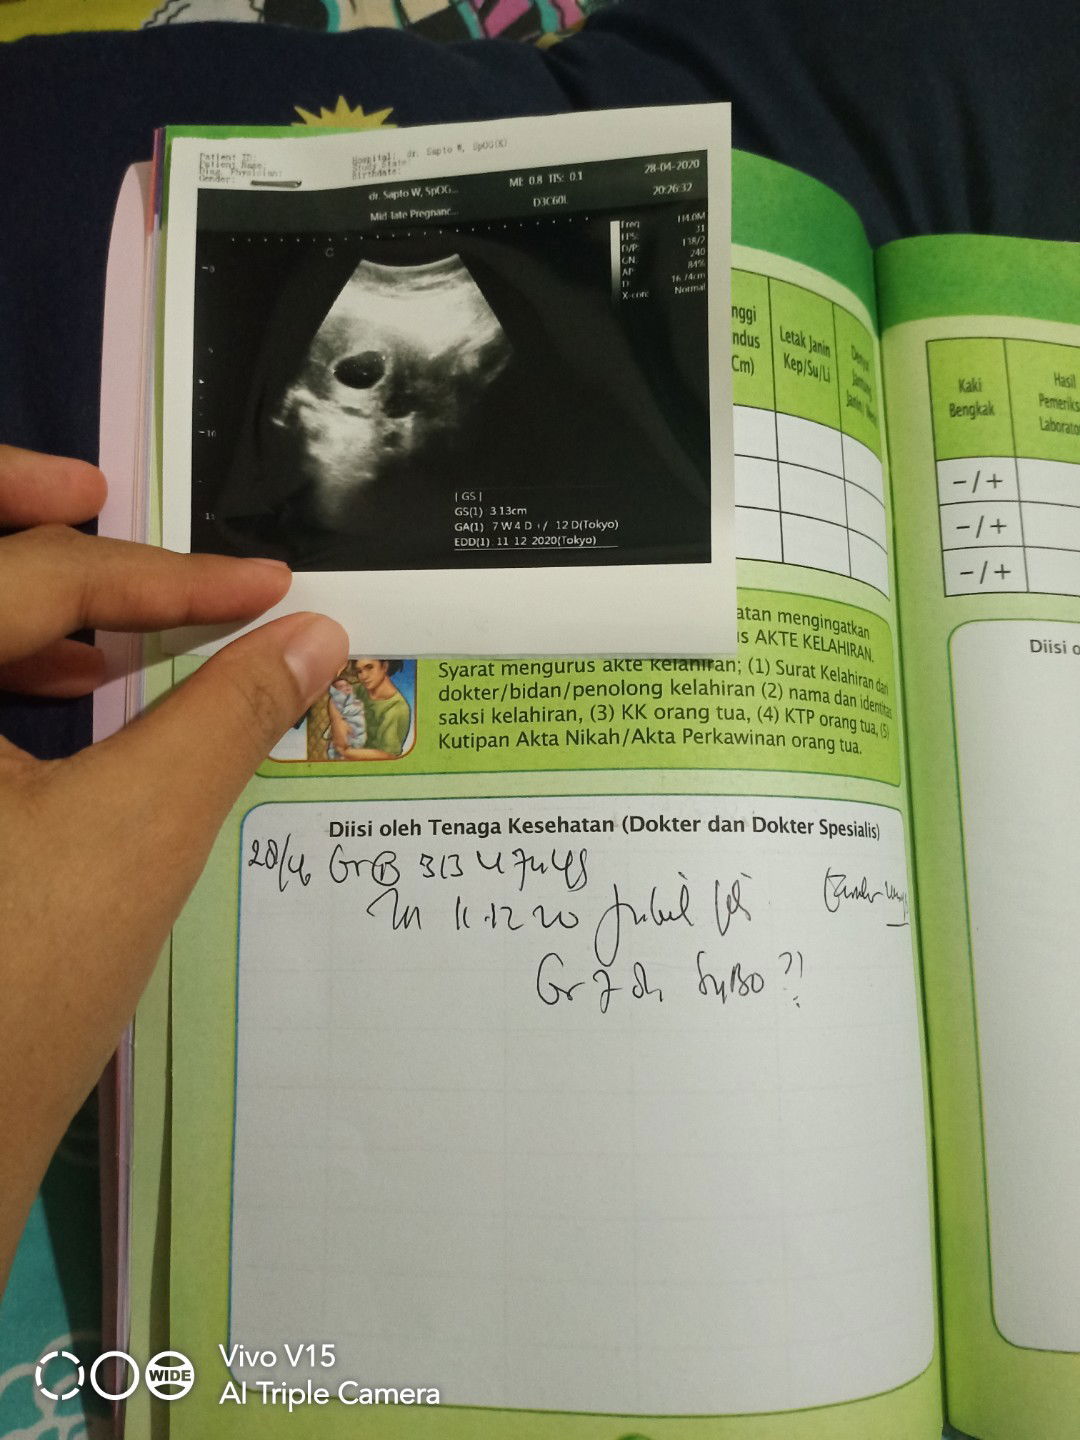 Patient ID:
Patient Name:
Diag. Physician:
Gender:
Hospital: dr. Sapto W, SpOG(K)
Study Date:
Birthdate:
dr. Sapto W, SpOG...
MI: 0.8 TIS: 0.1
28-04-2020
Mid-late Pregnanc...
D3C60L
20:26:32
Freq
FPS:
31
D/P:
138/2
GN:
240
AP
84%
D
16.74cm
X-cont
Normal
C
| GS |
GS(1) 3.13cm
GA(1) 7 W 4 D +/ 12 D(Tokyo)
EDD(1) 11 12 2020(Tokyo)
nggi
ndus
Cm)
Letak Janin
Kep/Su/Li
Denyut
Jantung
Janin
Kaki
Bengkak
Hasil
Pemeriks
Laborato
-/+
-/+
-/+
atan mengingatkan
us AKTE KELAHIRAN.
Syarat mengurus akte kelahiran; (1) Surat Kelahiran dari
dokter/bidan/penolong kelahiran (2) nama dan identitas
saksi kelahiran, (3) KK orang tua, (4) KTP orang tua, (5)
Kutipan Akta Nikah/Akta Perkawinan orang tua.
Diisi o
Diisi oleh Tenaga Kesehatan (Dokter dan Dokter Spesialis)
28/4 313
11.12 20
?!
WIDE
Vivo V15
AI Triple Camera